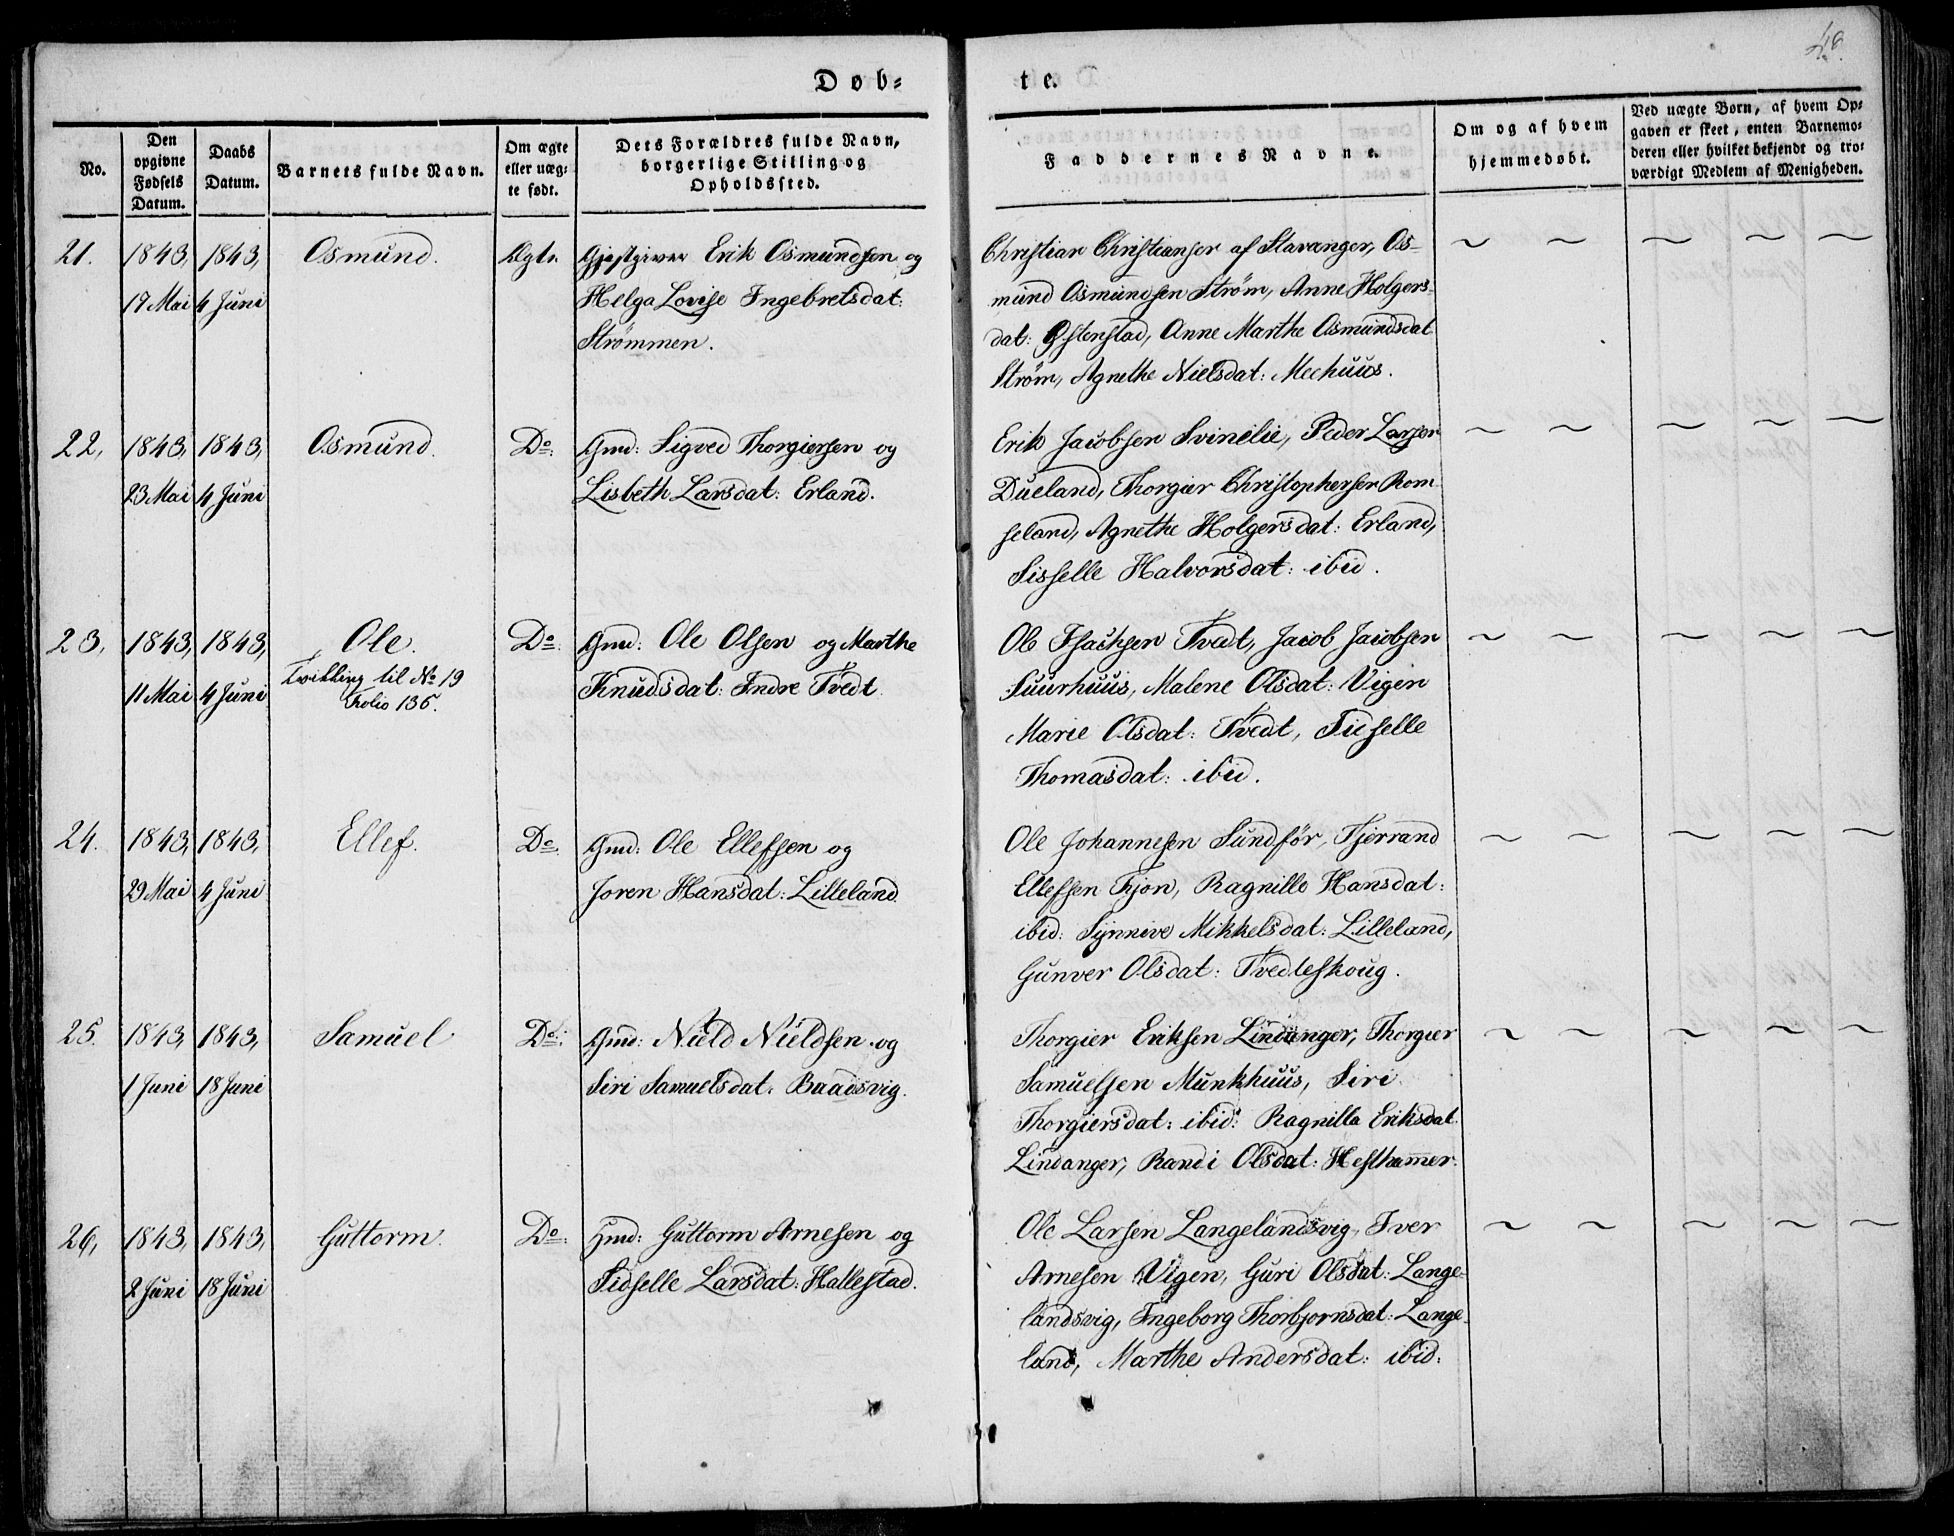 48.
Døb=
te.
No.
Den
opgivne
Fødsels
Datum.
Daabs
Datum.
Barnets fulde Navn.
Om ægte
eller uæg=
te født.
Dets Forældres fulde Navn,
borgerlige Stilling og
Opholdssted.
Faddernes Navne.
Om og af hvem
hjemmedøbt.
Ved uægte Børn, af hvem Op=
gaven er skeet, enten Barnemo=
deren eller hvilket bekjendt og tro=
værdigt Medlem af Menigheden.
21. 1843, 1843, Osmund. Ægte. Gjestgiver Erik Osmundsen og
17 Mai 4 Juni Helga Lovise Ingebretsdat:
Strømmen.
Christian Christiansen af Stavanger, Os=
mund Osmundsen Strøm, Anne Holgers=
dat: Østenstad, Anne Marthe Osmundsdat
Strøm, Agnethe Nielsdat: Meehuus.
22, 1843, 1843, Osmund. Do. Gmd: Sigved Thorgiersen og
23 Mai 4 Juni Lisbeth Larsdat: Erland.
Erik Jacobsen Svinelie, Peder Larsen
Dueland, Thorgier Christophersen Rom
seland, Agnethe Holgersdat: Erland,
Sisselle Halvorsdat: ibid.
23, 1843, 1843, Ole. Do. Gmd: Ole Olsen og Marthe
11 Mai 4 Juni Tvilling til No 19 Knudsdat: Indre Tvedt
Folio 136.
Ole Isachsen Tvedt, Jacob Jacobsen
Suurhuus, Malene Olsdat: Vigen
Marie Olsdat: Tvedt, Sisselle
Thomasdat: ibid.
24. 1843, 1843, Ellef. Do. Gmd: Ole Ellefsen og
29 Mai 4 Juni Joren Hansdat: Lilleland.
Ole Johannesen Sundfør, Tjerrand
Ellefsen Fjon, Ragnille Hansdat:
ibid: Synnive Mikkelsdat: Lilleland,
Gunver Olsdat: Tvedteskoug.
25. 1843, 1843, Samuel Do. Gmd: Nield Nieldsen og
1 Juni 18 Juni Siri Samuelsdat: Baadsvig.
Thorgier Eriksen Lindanger, Thorgier
Samuelsen Munkhuus, Siri
Thorgiersdat: ibid: Ragnilla Eriksdat
Lindanger, Randi Olsdat: Hesthammer.
26, 1843, 1843, Guttorm. Do. Gmd: Guttorm Arnesen og
2 Juni 18 Juni Sidselle Larsdat: Hallestad.
Ole Larsen Langelandsvig, Iver
Arnesen Vigen, Guri Olsdat: Lange=
landsvig, Ingeborg Thorbjornsdat: Lange=
land, Marthe Andersdat: ibid: